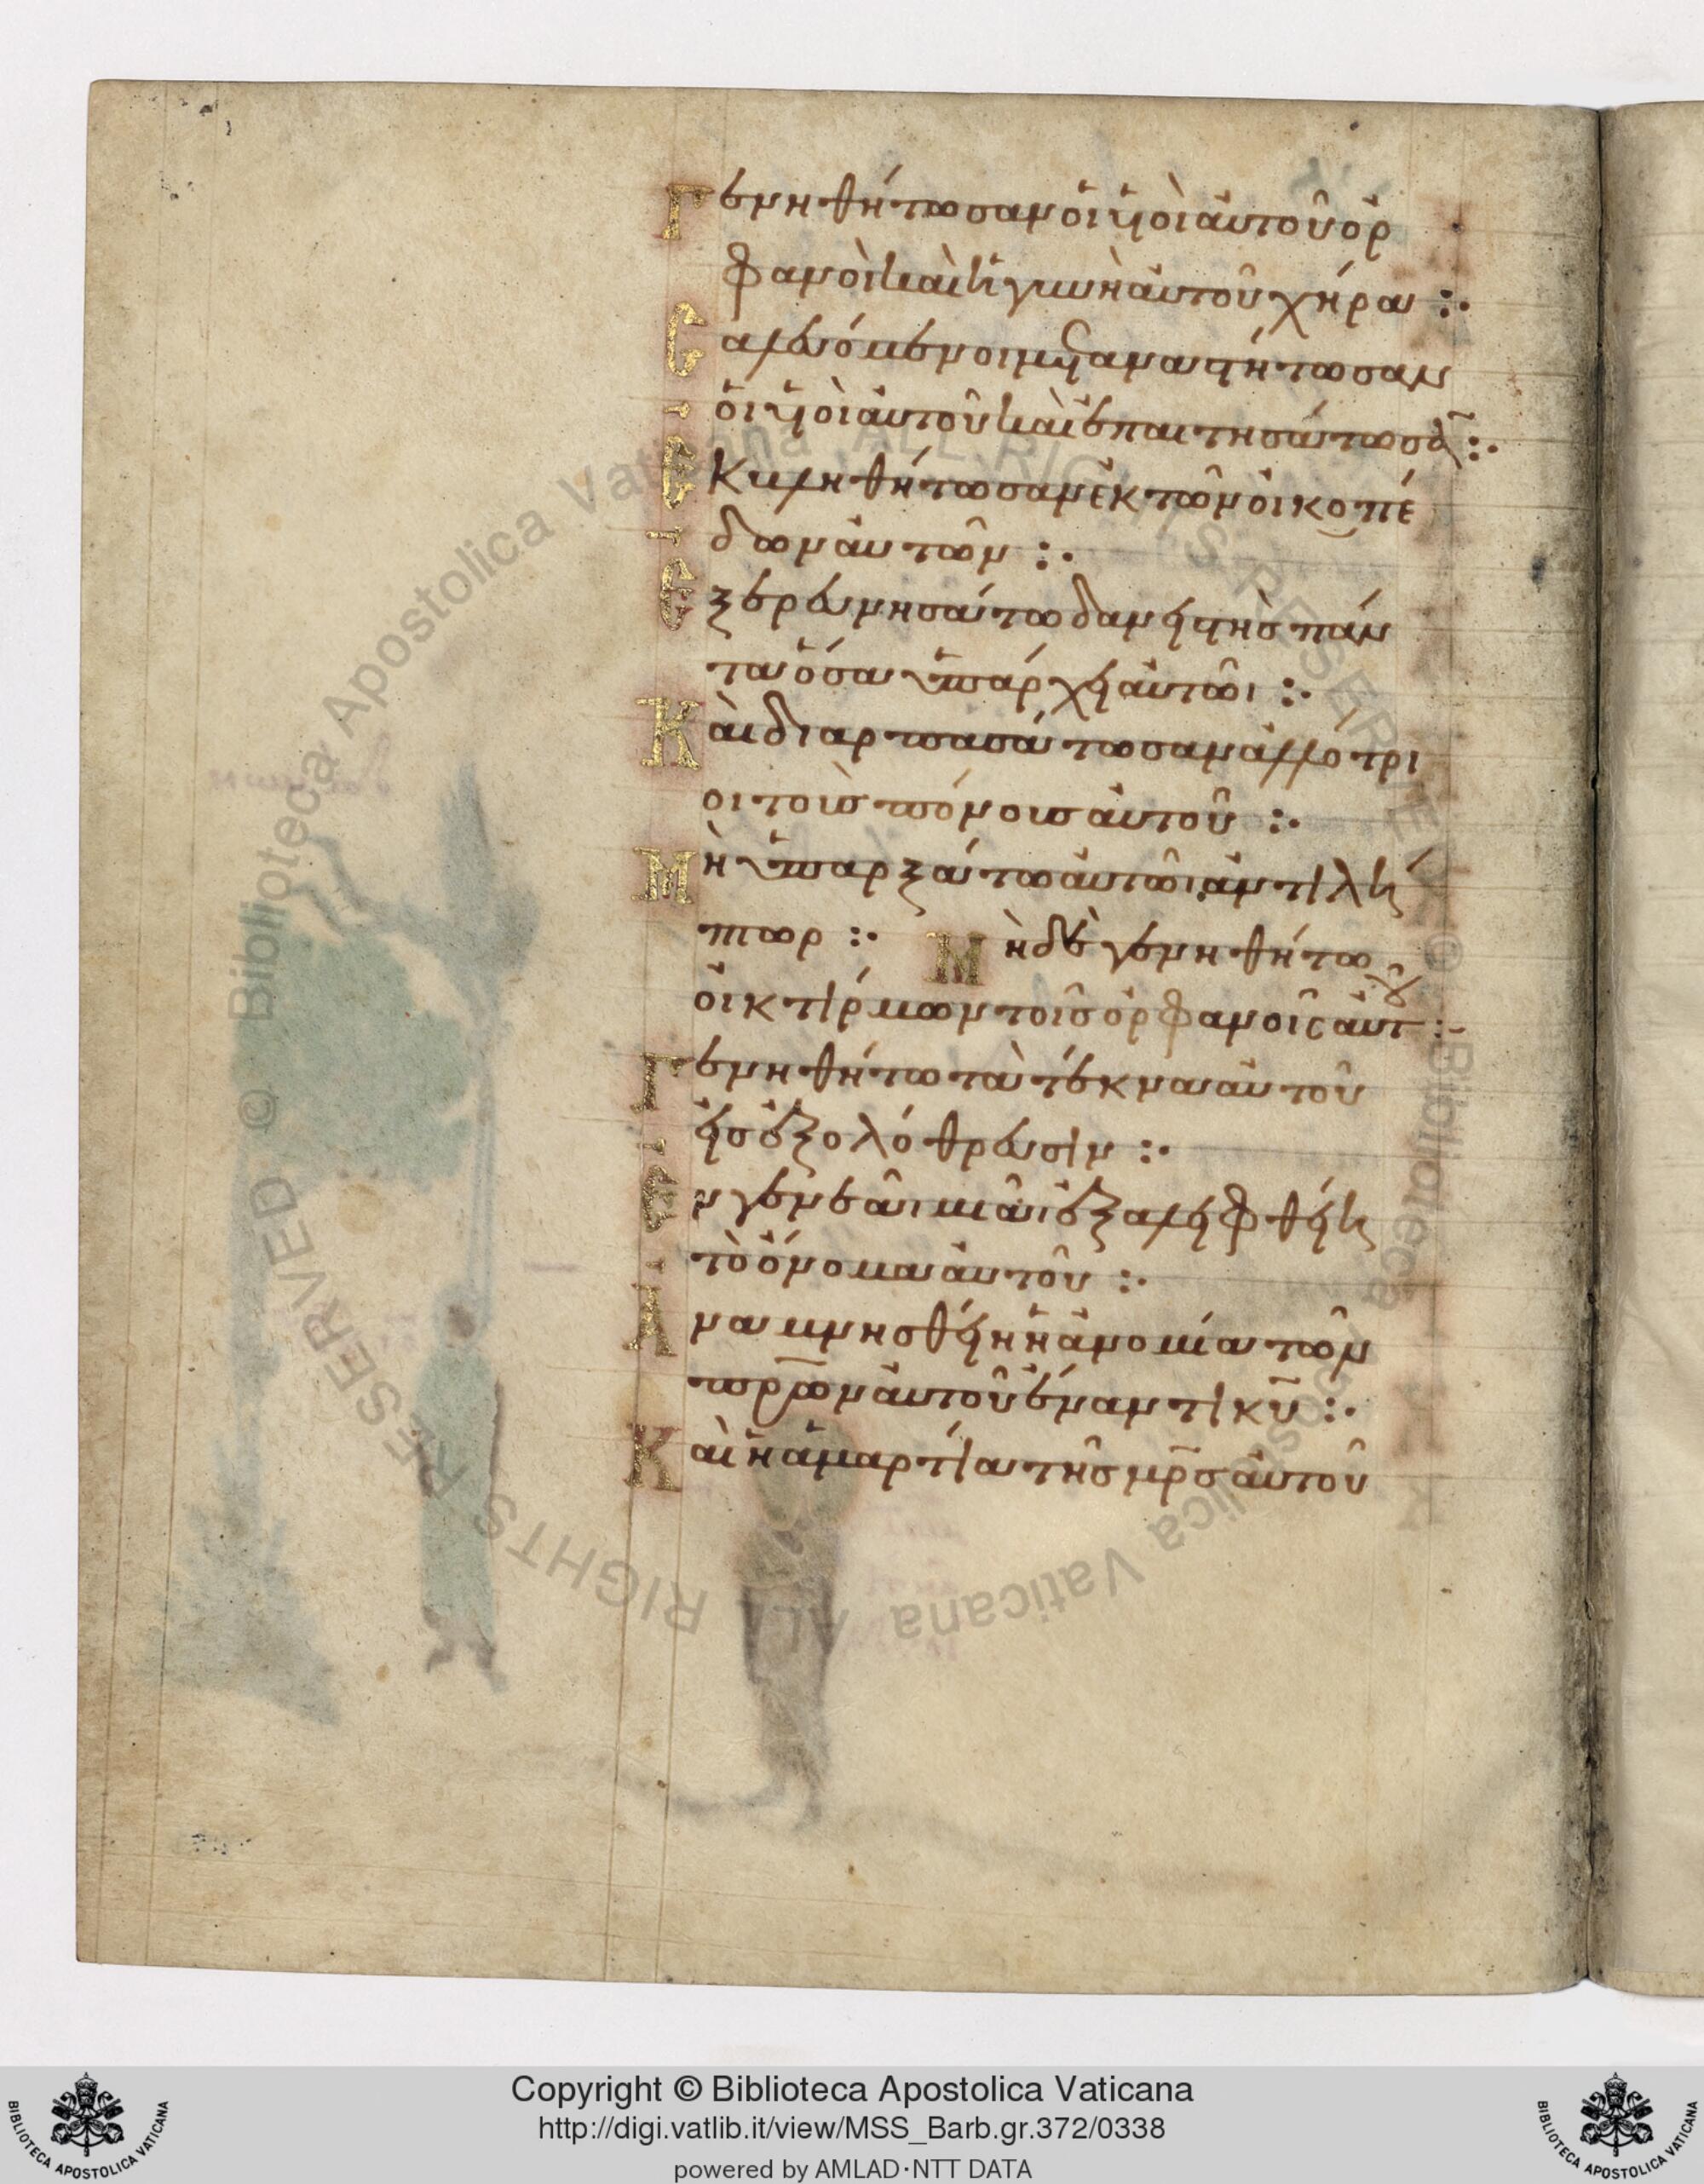 Γενηθήτωσαν οἱ υἱοὶ αὐτοῦ ὀρ
φανοὶ καὶ ἡ γυνὴ αὐτοῦ χήρα :·
Σαλευόμενοι μεταναστήτωσαν
οἱ υἱοὶ αὐτοῦ καὶ ἐπαιτησάτωσα̅ :·
Ἐκβληθήτωσαν ἐκ τῶν οἰκοπέ
δων αὐτῶν :·
Ἐξερευνησάτω δανειστὴς πάν
τα ὅσα ὑπάρχει αὐτῶι :·
Καὶ διαρπασάτωσαν ἀλλότρι
οι τοὺς πόνους αὐτοῦ :·
Μὴ ὑπαρξάτω αὐτῶι ἀντιλή
πτωρ :· Μὴδὲ γενηθήτω
οἰκτίρμων τοῖς ὀρφανοῖς αὐτοῦ :·
Γενηθήτω τὰ τέκνα αὐτοῦ
εἰς ἐξολόθρευσιν :·
Ἐν γενεᾶι μιᾶι ἐξαλειφθείη
τὸ ὄνομα αὐτοῦ :·
Ἀναμνησθείη ἡ ἀνομία τῶν
πρ̅ων αὐτοῦ ἔναντι κυ̅ :·
Καὶ ἡ ἁμαρτία τῆς μρ̅ς αὐτοῦ
Copyright © Biblioteca Apostolica Vaticana
http://digi.vatlib.it/view/MSS_Barb.gr.372/0338
powered by AMLAD·NTT DATA
BIBLIOTECA APOSTOLICA VATICANA
BIBLIOTECA APOSTOLICA VATICANA